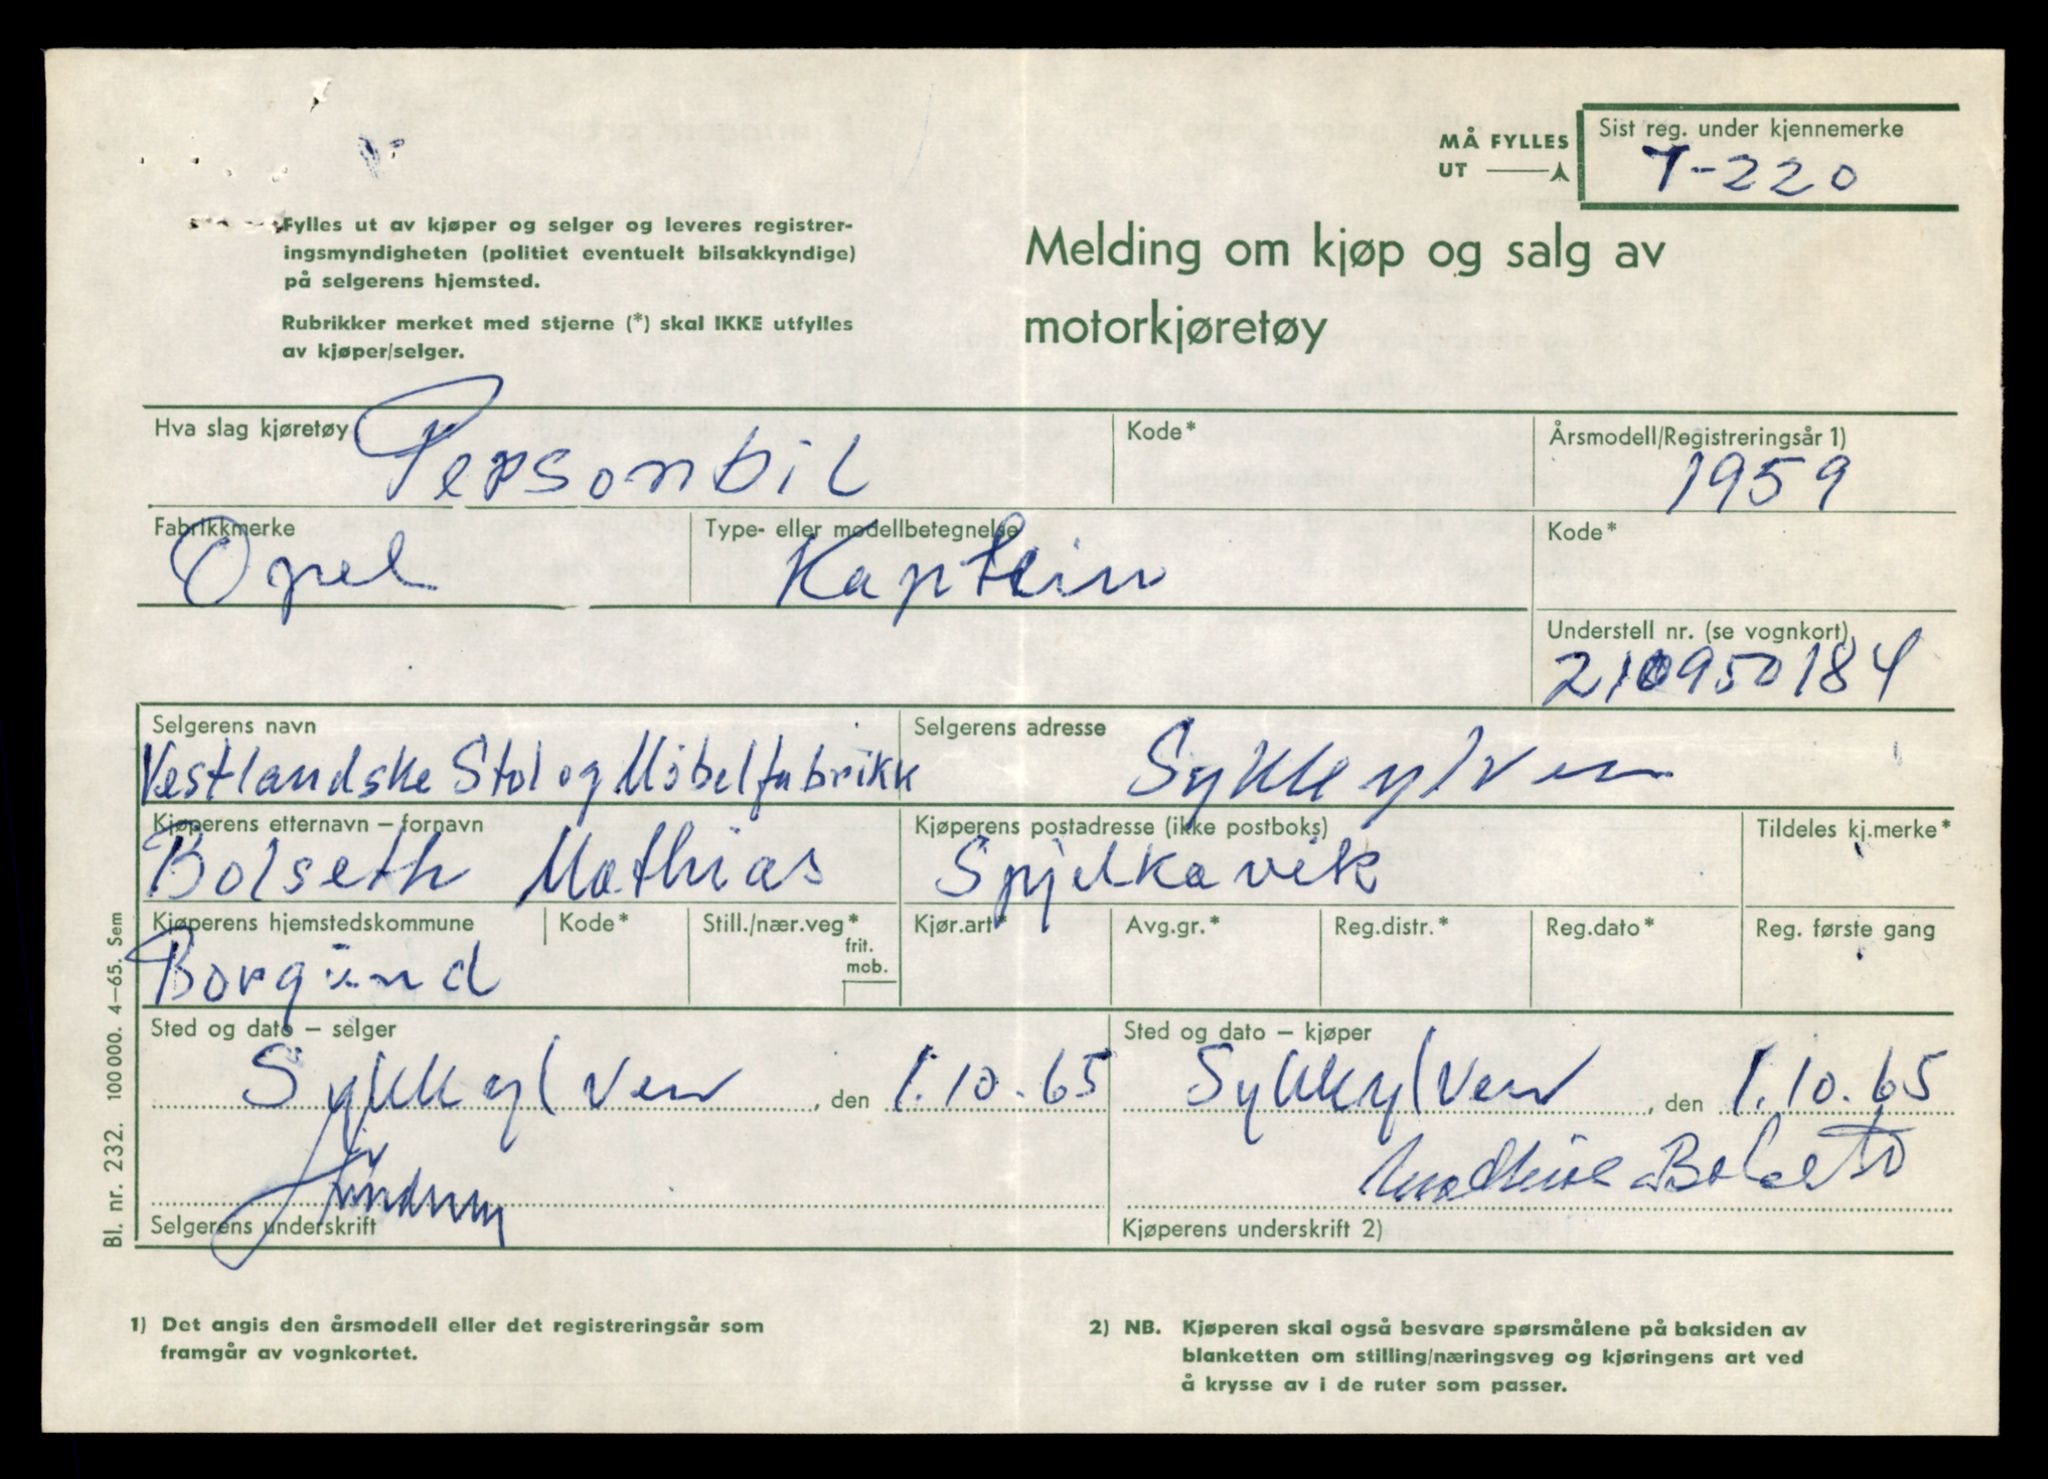 MÅ FYLLES UT
Sist reg. under kjennemerke
T-220
Fylles ut av kjøper og selger og leveres registrer-
ingsmyndigheten (politiet eventuelt bilsakkyndige)
på selgerens hjemsted.
Rubrikker merket med stjerne (*) skal IKKE utfylles
av kjøper/selger.
Melding om kjøp og salg av
motorkjøretøy
Hva slag kjøretøy Personbil
Kode*
Årsmodell/Registreringsår 1)
1959
Fabrikkmerke
Opel
Type- eller modellbetegnelse
Kaptein
Kode*
Understell nr. (se vognkort)
210950184
Selgerens navn
Vestlandske Stol og Møbelfabrikk
Selgerens adresse
Sykkylven
Kjøperens etternavn – fornavn
Bolseth Mathias
Kjøperens postadresse (ikke postboks)
Spjelkavik
Tildeles kj.merke*
Kjøperens hjemstedskommune
Borgund
Kode*
Still./nær.veg*
frit.
mob.
Kjør.art*
Avg.gr.*
Reg.distr.*
Reg.dato*
Reg. første gang
Sted og dato – selger
Sykkylven, den 1.10.65
Sted og dato – kjøper
Sykkylven, den 1.10.65
Selgerens underskrift
Mathias Bolseth
Kjøperens underskrift 2)
Bl. nr. 232. 100 000. 4–65. Sem
1) Det angis den årsmodell eller det registreringsår som
framgår av vognkortet.
2) NB. Kjøperen skal også besvare spørsmålene på baksiden av
blanketten om stilling/næringsveg og kjøringens art ved
å krysse av i de ruter som passer.